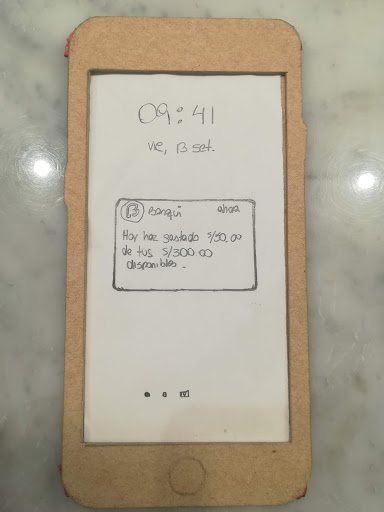 09:41
vie, 13 set.
B Banqui ahora
Hoy haz gastado S/50.00
de tus S/300.00
disponibles.